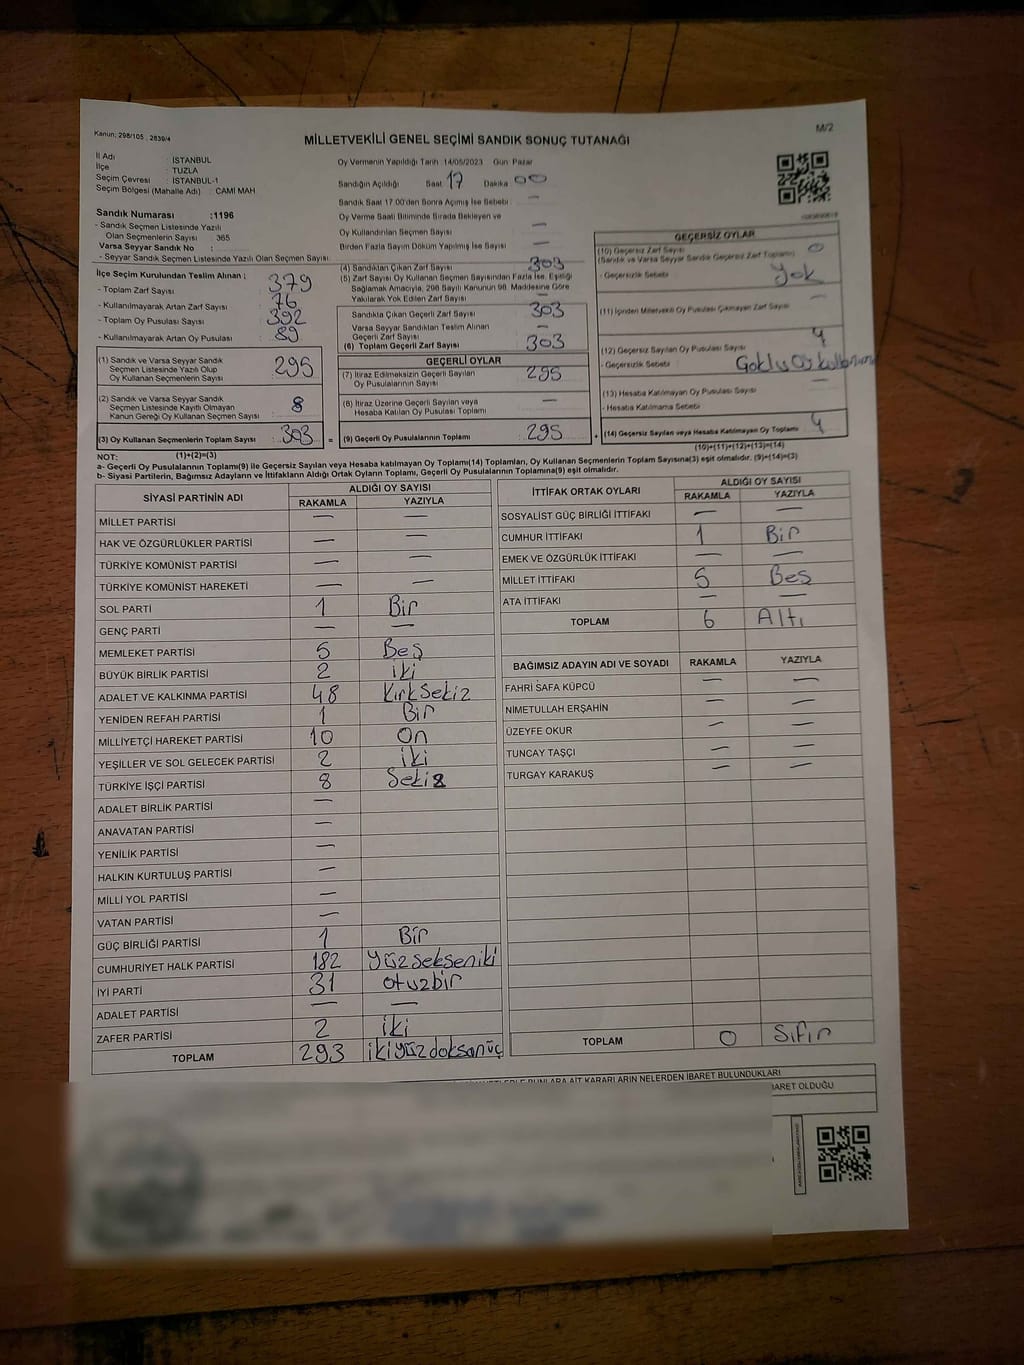 Kanun: 298/105 , 2839/4
M/2
MİLLETVEKİLİ GENEL SEÇİMİ SANDIK SONUÇ TUTANAĞI
İl Adı : İSTANBUL
İlçe : TUZLA
Seçim Çevresi : İSTANBUL-1
Seçim Bölgesi (Mahalle Adı) : CAMİ MAH
Sandık Numarası :1196
- Sandık Seçmen Listesinde Yazılı
Olan Seçmenlerin Sayısı : 365
Varsa Seyyar Sandık No :
- Seyyar Sandık Seçmen Listesinde Yazılı Olan Seçmen Sayısı
Oy Vermenin Yapıldığı Tarih 14/05/2023 Gün Pazar
Sandığın Açıldığı Saat 17 Dakika 00
Sandık Saat 17.00'den Sonra Açımış İse Sebebi : —
Oy Verme Saati Bitiminde Sırada Bekleyen ve
Oy Kullandırılan Seçmen Sayısı —
Birden Fazla Sayım Döküm Yapılmış İse Sayısı —
İlçe Seçim Kurulundan Teslim Alınan ;
- Toplam Zarf Sayısı : 379
- Kullanılmayarak Artan Zarf Sayısı : 76
- Toplam Oy Pusulası Sayısı : 392
- Kullanılmayarak Artan Oy Pusulası : 89
(1) Sandık ve Varsa Seyyar Sandık
Seçmen Listesinde Yazılı Olup
Oy Kullanan Seçmenlerin Sayısı 295
(2) Sandık ve Varsa Seyyar Sandık
Seçmen Listesinde Kayıtlı Olmayan
Kanun Gereği Oy Kullanan Seçmen Sayısı 8
(3) Oy Kullanan Seçmenlerin Toplam Sayısı 303
(1)+(2)=(3)
(4) Sandıktan Çıkan Zarf Sayısı 303
(5) Zarf Sayısı Oy Kullanan Seçmen Sayısından Fazla İse, Eşitliği
Sağlamak Amacıyla, 298 Sayılı Kanunun 98. Maddesine Göre
Yakılarak Yok Edilen Zarf Sayısı —
Sandıkta Çıkan Geçerli Zarf Sayısı 303
Varsa Seyyar Sandıktan Teslim Alınan
Geçerli Zarf Sayısı —
(6) Toplam Geçerli Zarf Sayısı 303
GEÇERLİ OYLAR
(7) İtiraz Edilmeksizin Geçerli Sayılan
Oy Pusulalarının Sayısı 295
(8) İtiraz Üzerine Geçerli Sayılan veya
Hesaba Katılan Oy Pusulası Toplamı —
= (9) Geçerli Oy Pusulalarının Toplamı 295 +
GEÇERSİZ OYLAR
(10) Geçersiz Zarf Sayısı 0
(Sandık ve Varsa Seyyar Sandık Geçersiz Zarf Toplamı)
- Geçersizlik Sebebi : Yok
(11) İçinden Milletvekili Oy Pusulası Çıkmayan Zarf Sayısı —
(12) Geçersiz Sayılan Oy Pusulası Sayısı 4
- Geçersizlik Sebebi
(13) Hesaba Katılmayan Oy Pusulası Sayısı —
- Hesaba Katılmama Sebebi
(14) Geçersiz Sayılan veya Hesaba Katılmayan Oy Toplamı 4
(10)+(11)+(12)+(13)=(14)
NOT:
a- Geçerli Oy Pusulalarının Toplamı(9) ile Geçersiz Sayılan veya Hesaba katılmayan Oy Toplamı(14) Toplamları, Oy Kullanan Seçmenlerin Toplam Sayısına(3) eşit olmalıdır. (9)+(14)=(3)
b- Siyasi Partilerin, Bağımsız Adayların ve İttifakların Aldığı Ortak Oyların Toplamı, Geçerli Oy Pusulalarının Toplamına(9) eşit olmalıdır.
SİYASİ PARTİNİN ADI ALDIĞI OY SAYISI
RAKAMLA YAZIYLA
MİLLET PARTİSİ — —
HAK VE ÖZGÜRLÜKLER PARTİSİ — —
TÜRKİYE KOMÜNİST PARTİSİ — —
TÜRKİYE KOMÜNİST HAREKETİ — —
SOL PARTİ 1 Bir
GENÇ PARTİ — —
MEMLEKET PARTİSİ 5 Beş
BÜYÜK BİRLİK PARTİSİ 2 iki
ADALET VE KALKINMA PARTİSİ 48 KırkSekiz
YENİDEN REFAH PARTİSİ 1 Bir
MİLLİYETÇİ HAREKET PARTİSİ 10 On
YEŞİLLER VE SOL GELECEK PARTİSİ 2 iki
TÜRKİYE İŞÇİ PARTİSİ 8 Sekiz
ADALET BİRLİK PARTİSİ —
ANAVATAN PARTİSİ —
YENİLİK PARTİSİ —
HALKIN KURTULUŞ PARTİSİ —
MİLLİ YOL PARTİSİ —
VATAN PARTİSİ —
GÜÇ BİRLİĞİ PARTİSİ 1 Bir
CUMHURİYET HALK PARTİSİ 182 yüzsekseniki
İYİ PARTİ 31 otuzbir
ADALET PARTİSİ — —
ZAFER PARTİSİ 2 iki
TOPLAM 293 ikiyüzdoksanüç
İTTİFAK ORTAK OYLARI ALDIĞI OY SAYISI
RAKAMLA YAZIYLA
SOSYALİST GÜÇ BİRLİĞİ İTTİFAKI — —
CUMHUR İTTİFAKI 1 Bir
EMEK VE ÖZGÜRLÜK İTTİFAKI — —
MİLLET İTTİFAKI 5 Beş
ATA İTTİFAKI — —
TOPLAM 6 Altı
BAĞIMSIZ ADAYIN ADI VE SOYADI RAKAMLA YAZIYLA
FAHRİ SAFA KÜPCÜ — —
NİMETULLAH ERŞAHİN — —
ÜZEYFE OKUR — —
TUNCAY TAŞÇI — —
TURGAY KARAKUŞ — —
TOPLAM 0 Sıfır
BUNLARA AİT KARARLARIN NELERDEN İBARET BULUNDUKLARI
İBARET OLDUĞU